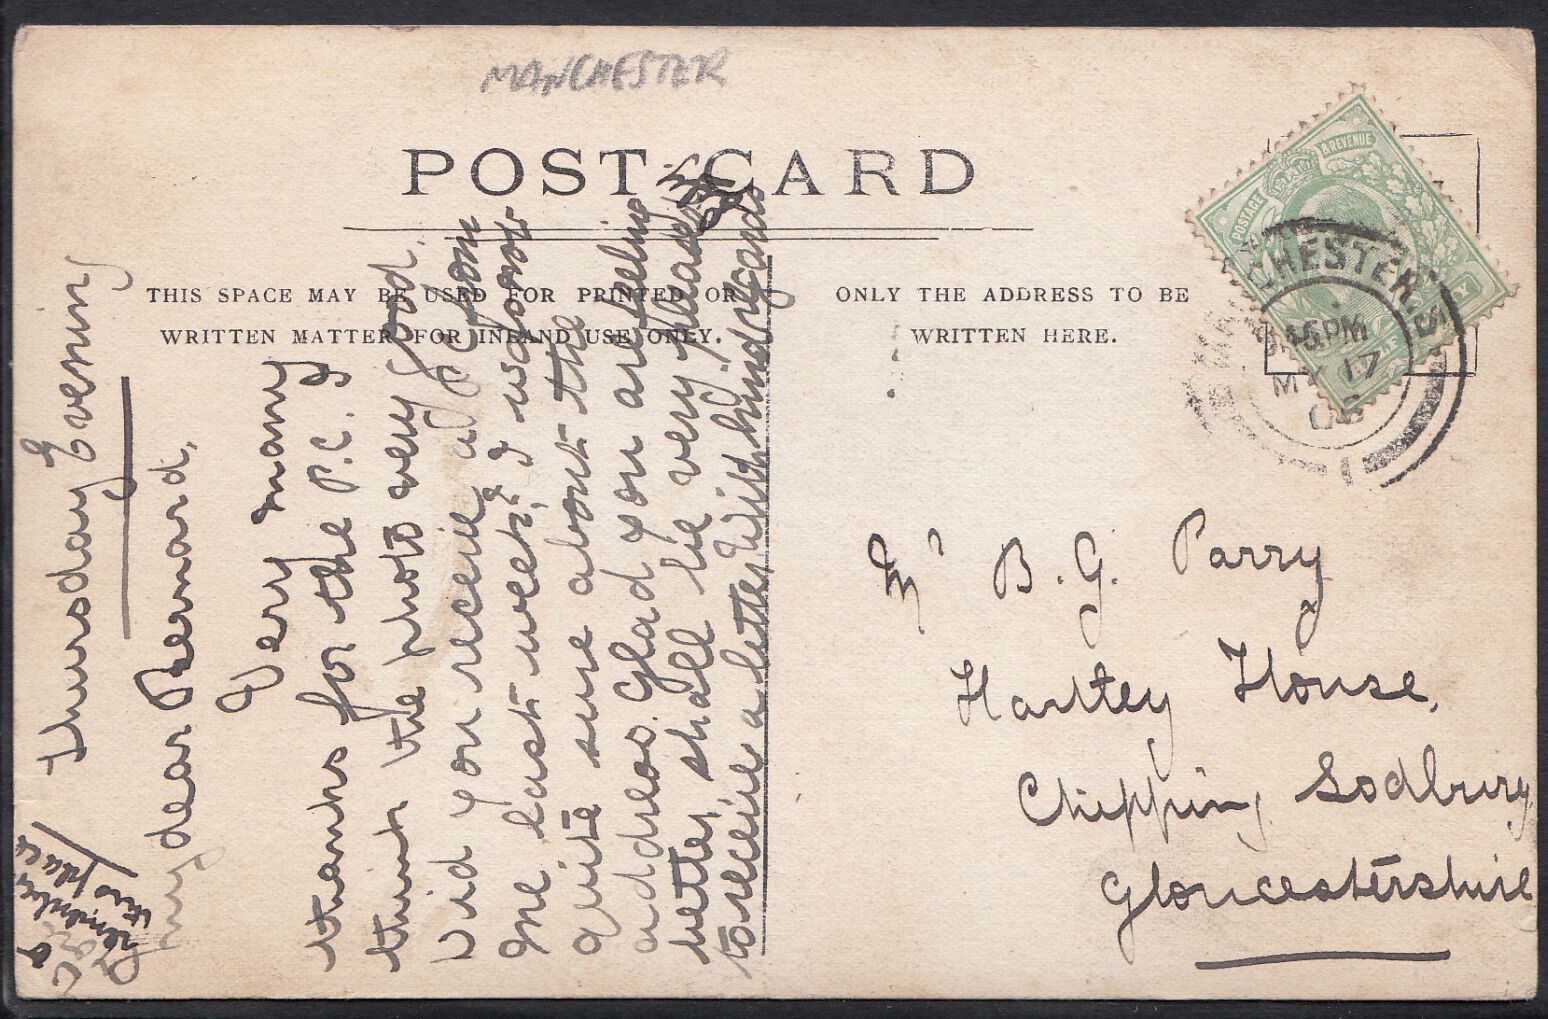 MANCHESTER
POST CARD
THIS SPACE MAY BE USED FOR PRINTED OR
WRITTEN MATTER FOR INLAND USE ONLY.
ONLY THE ADDRESS TO BE
WRITTEN HERE.
POSTAGE & REVENUE
MANCHESTER.S
45PM
MY 17
06
1
Thursday Evening
My dear Bernard,
Very many
thanks for the P.C. I
think the photo very good.
Did you receive a P.C. from
me last week, I was not
quite sure about the
address. Glad you are feeling
better, shall be very pleased
to receive a letter With kind regards
remember
this place
Mr B. G. Parry
Hartley House,
Chipping Sodbury
Gloucestershire